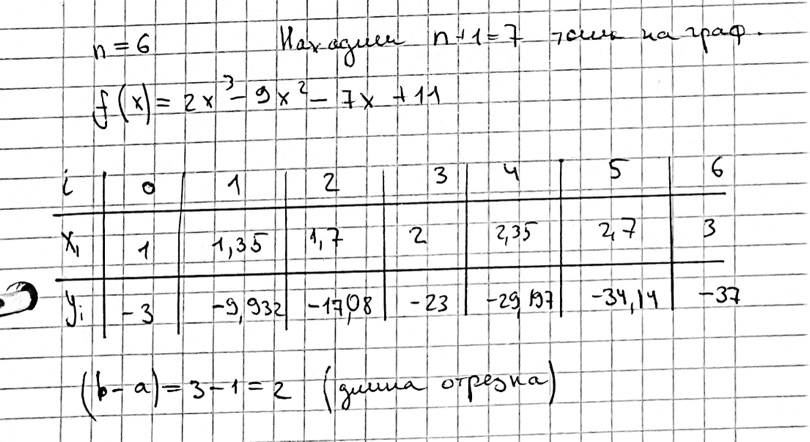 n = 6 Находим n+1=7 точек на граф.
f(x) = 2x³ - 9x² - 7x + 11
i 0 1 2 3 4 5 6
xᵢ 1 1,35 1,7 2 2,35 2,7 3
yᵢ -3 -9,932 -17,08 -23 -29,197 -34,14 -37
(b-a) = 3-1 = 2 (длина отрезка)